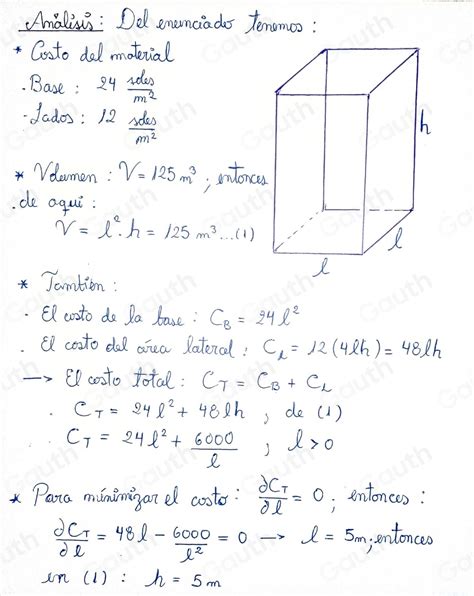 Análisis: Del enunciado tenemos:
* Costo del material
. Base: 24 soles/m²
- Lados: 12 soles/m²
* Volumen: V = 125 m³; entonces
. de aquí:
V = l². h = 125 m³...(1)
h
l
l
* También:
. El costo de la base: C_B = 24l²
. El costo del área lateral: C_L = 12(4lh) = 48lh
→ El costo total: C_T = C_B + C_L
. C_T = 24l² + 48lh ; de (1)
. C_T = 24l² + 6000/l ; l>0
* Para minimizar el costo: ∂C_T/∂l = 0; entonces:
∂C_T/∂l = 48l - 6000/l² = 0 → l = 5m; entonces
en (1): h = 5m
Gauth